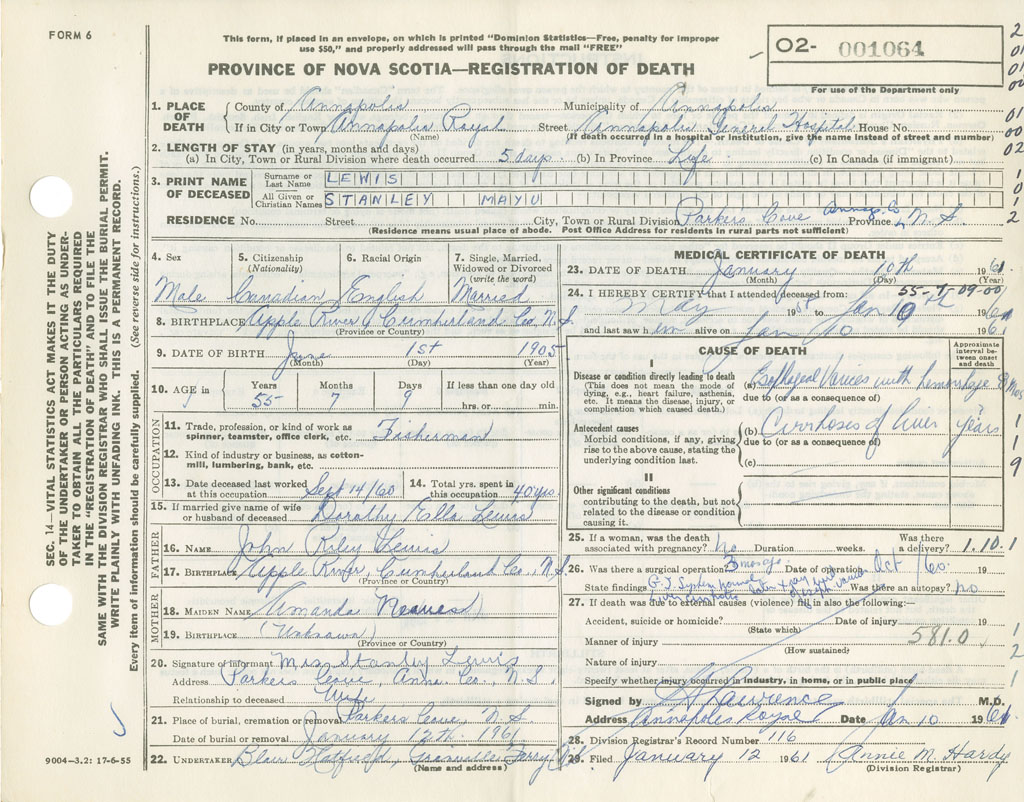 FORM 6
This form, if placed in an envelope, on which is printed "Dominion Statistics—Free, penalty for improper
use $50," and properly addressed will pass through the mail "FREE"
PROVINCE OF NOVA SCOTIA—REGISTRATION OF DEATH
02- 001064
For use of the Department only
1. PLACE OF DEATH
County of Annapolis Municipality of Annapolis
If in City or Town Annapolis Royal Street Annapolis General Hospital House No.
(Name) (If death occurred in a hospital or institution, give the name instead of street and number)
2. LENGTH OF STAY (in years, months and days)
(a) In City, Town or Rural Division where death occurred 5 days (b) In Province Life (c) In Canada (if immigrant)
3. PRINT NAME OF DECEASED
Surname or Last Name LEWIS
All Given or Christian Names STANLEY MAYU
RESIDENCE No. Street City, Town or Rural Division Parkers Cove Annap. Co Province N.S.
(Residence means usual place of abode. Post Office Address for residents in rural parts not sufficient)
4. Sex Male
5. Citizenship (Nationality) Canadian
6. Racial Origin English
7. Single, Married, Widowed or Divorced (write the word) Married
8. BIRTHPLACE Apple River, Cumberland Co. N.S.
(Province or Country)
9. DATE OF BIRTH June 1st 1905
(Month) (Day) (Year)
10. AGE in Years 55 Months 7 Days 9 If less than one day old hrs. or min.
OCCUPATION
11. Trade, profession, or kind of work as spinner, teamster, office clerk, etc. Fisherman
12. Kind of industry or business, as cotton-mill, lumbering, bank, etc.
13. Date deceased last worked at this occupation Sept 14/60
14. Total yrs. spent in this occupation 40 yrs.
15. If married give name of wife or husband of deceased Dorothy Ella Lewis
FATHER
16. NAME John Lewis
17. BIRTHPLACE Apple River, Cumberland Co., N.S.
(Province or Country)
MOTHER
18. MAIDEN NAME Amanda
19. BIRTHPLACE (Unknown)
(Province or Country)
20. Signature of informant Mrs. Stanley Lewis
Address Parkers Cove, Anna. Co., N.S.
Relationship to deceased Wife
21. Place of burial, cremation or removal Parkers Cove, N.S.
Date of burial or removal January 12th 1961
22. UNDERTAKER Blair Hatfield, Granville Ferry, N.S.
(Name and address)
MEDICAL CERTIFICATE OF DEATH
23. DATE OF DEATH January 10th 1961
(Month) (Day) (Year)
55-7-09-00
24. I HEREBY CERTIFY that I attended deceased from:
May 1958 to Jan 10 1961
and last saw him alive on Jan 10 1961
CAUSE OF DEATH
Approximate interval between onset and death
I
Disease or condition directly leading to death
(This does not mean the mode of dying, e.g., heart failure, asthenia, etc. It means the disease, injury, or complication which caused death.)
(a) Varices with hemorrhage 3 mos
due to (or as a consequence of)
Antecedent causes
Morbid conditions, if any, giving rise to the above cause, stating the underlying condition last.
(b) Cirrhoses of liver years ?
due to (or as a consequence of)
(c)
II
Other significant conditions
contributing to the death, but not related to the disease or condition causing it.
25. If a woman, was the death associated with pregnancy? no Duration weeks. Was there a delivery? 1.10.1
26. Was there a surgical operation? Date of operation Oct 1960
State findings Was there an autopsy? no
27. If death was due to external causes (violence) fill in also the following:—
Accident, suicide or homicide? Date of injury 19
(State which)
Manner of injury 581.0
(How sustained)
Nature of injury
Specify whether injury occurred in industry, in home, or in public place
Signed by Lawrence M.D.
Address Annapolis Royal Date Jan 10 1961
28. Division Registrar's Record Number 116
29. Filed January 12 1961 Annie M. Hardy
(Division Registrar)
SEC. 14—VITAL STATISTICS ACT MAKES IT THE DUTY
OF THE UNDERTAKER OR PERSON ACTING AS UNDER-
TAKER TO OBTAIN ALL THE PARTICULARS REQUIRED
IN THE "REGISTRATION OF DEATH" AND TO FILE THE
SAME WITH THE DIVISION REGISTRAR WHO SHALL ISSUE THE BURIAL PERMIT.
WRITE PLAINLY WITH UNFADING INK. THIS IS A PERMANENT RECORD.
Every item of information should be carefully supplied. (See reverse side for instructions.)
9004-3.2: 17-6-55